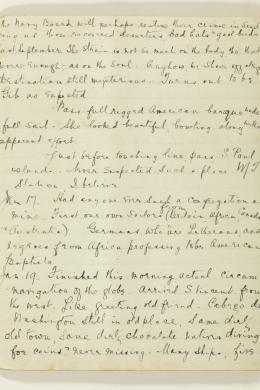 the Navy Board will perhaps realise their crime in send
ing us those recovered deserters bad hats & good birds
last September. The strain is not so much on the body tho' that
worse enough - as on the soul. Anyhow
destination still mysterious. Turns out to be
Gib as expected
Pass full rigged American barque under
full sail. She looked beautiful, bowling along without
apparent effort.
Just before touching line pass S. Paul
islands. Never suspected such a place W/T
Station I believe
17. Had anyone ever such a congregation as
mine. First our own sailors (Britain Africa Canada
& Australia) Germans, who are Lutherans and
negroes from Africa professing to be American
Baptists.
Jan 19. Finished this morning actual circum
navigation of the globe. Arrived S. Vincent from
the west. Like greeting old friend. Cabeça de
Washington still in old place, same dirty
old town, same dirty chocolate natives diving
for coins & never missing. Many ships, five